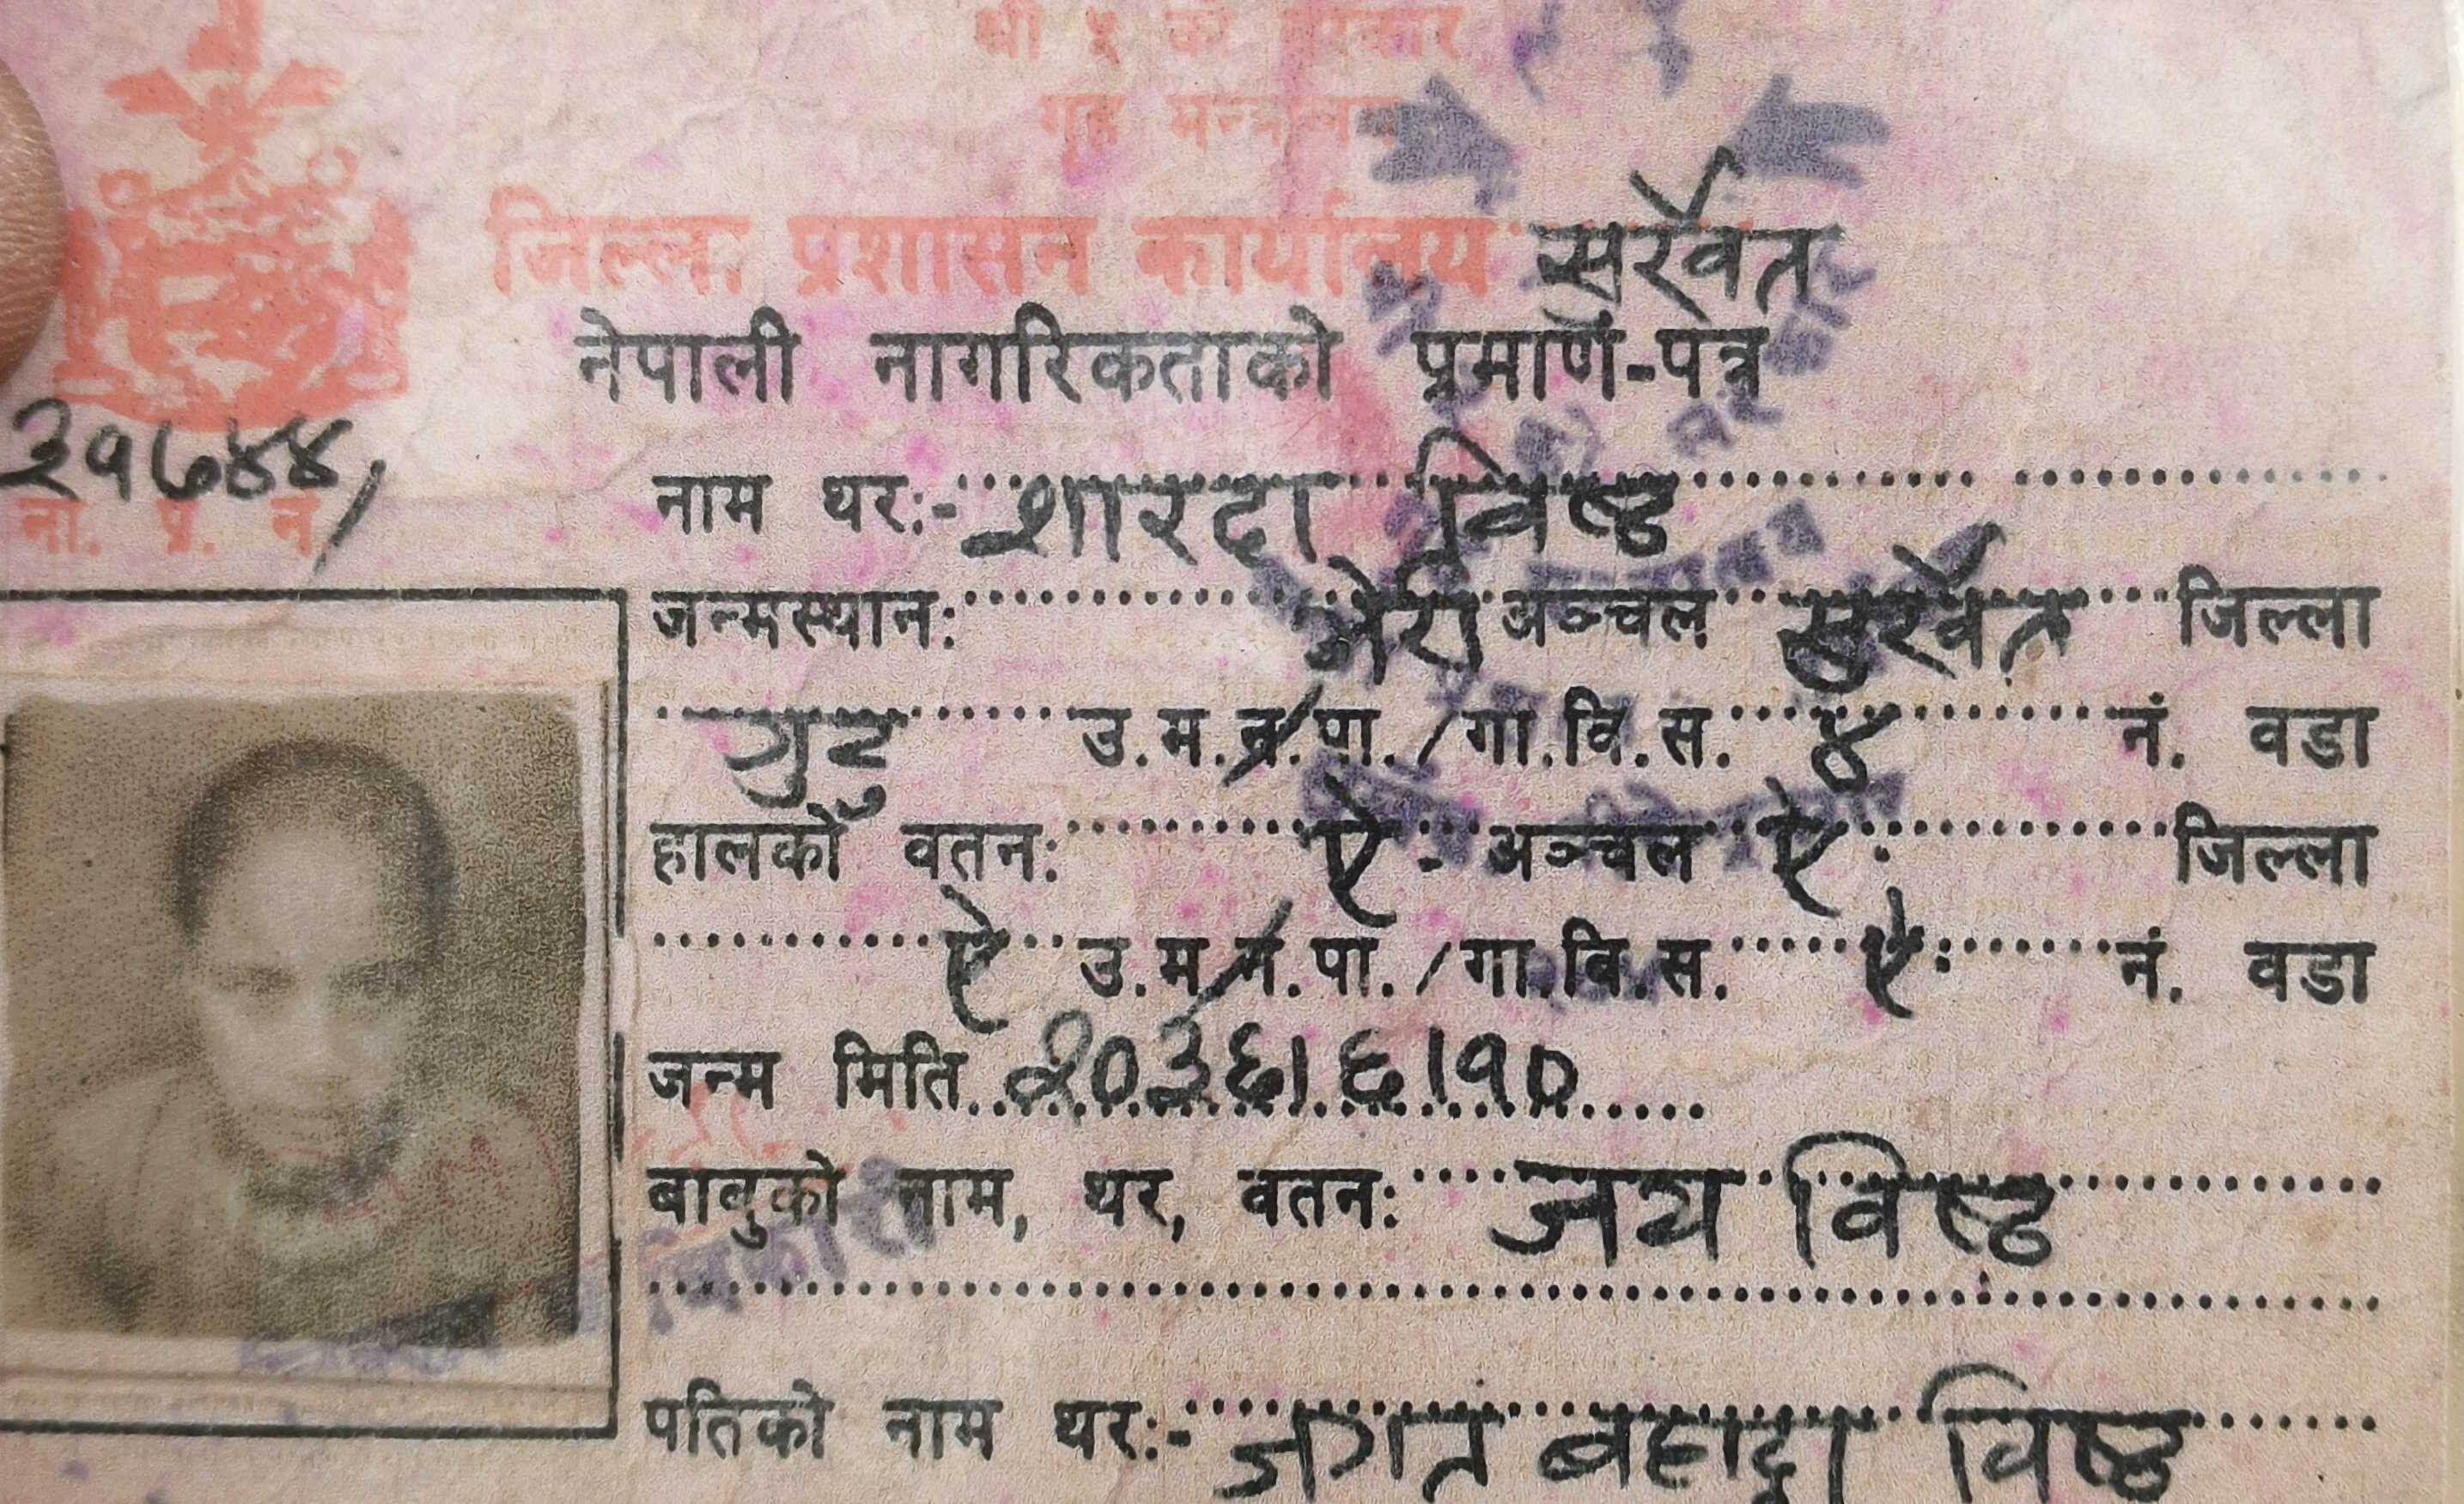 श्री ५ को सरकार
गृह मन्त्रालय
जिल्ला प्रशासन कार्यालय सुर्खेत
नेपाली नागरिकताको प्रमाण-पत्र
३१७४४
ना. प्र. नं.
नाम थर:- शारदा विष्ट
जन्मस्थान: भेरी अञ्चल सुर्खेत जिल्ला
गुटु उ.म.न.पा./गा.वि.स. ४ नं. वडा
हालको वतन: ऐ. अञ्चल ऐ. जिल्ला
ऐ उ.म.न.पा./गा.वि.स. ऐ. नं. वडा
जन्म मिति २०३६।६।१०
बाबुको नाम, थर, वतन: जय विष्ट
पतिको नाम थर:- जगत बहादुर विष्ट